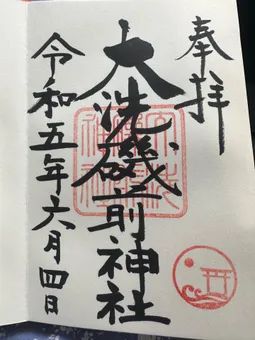 奉拝
大洗磯前神社
令和五年六月四日